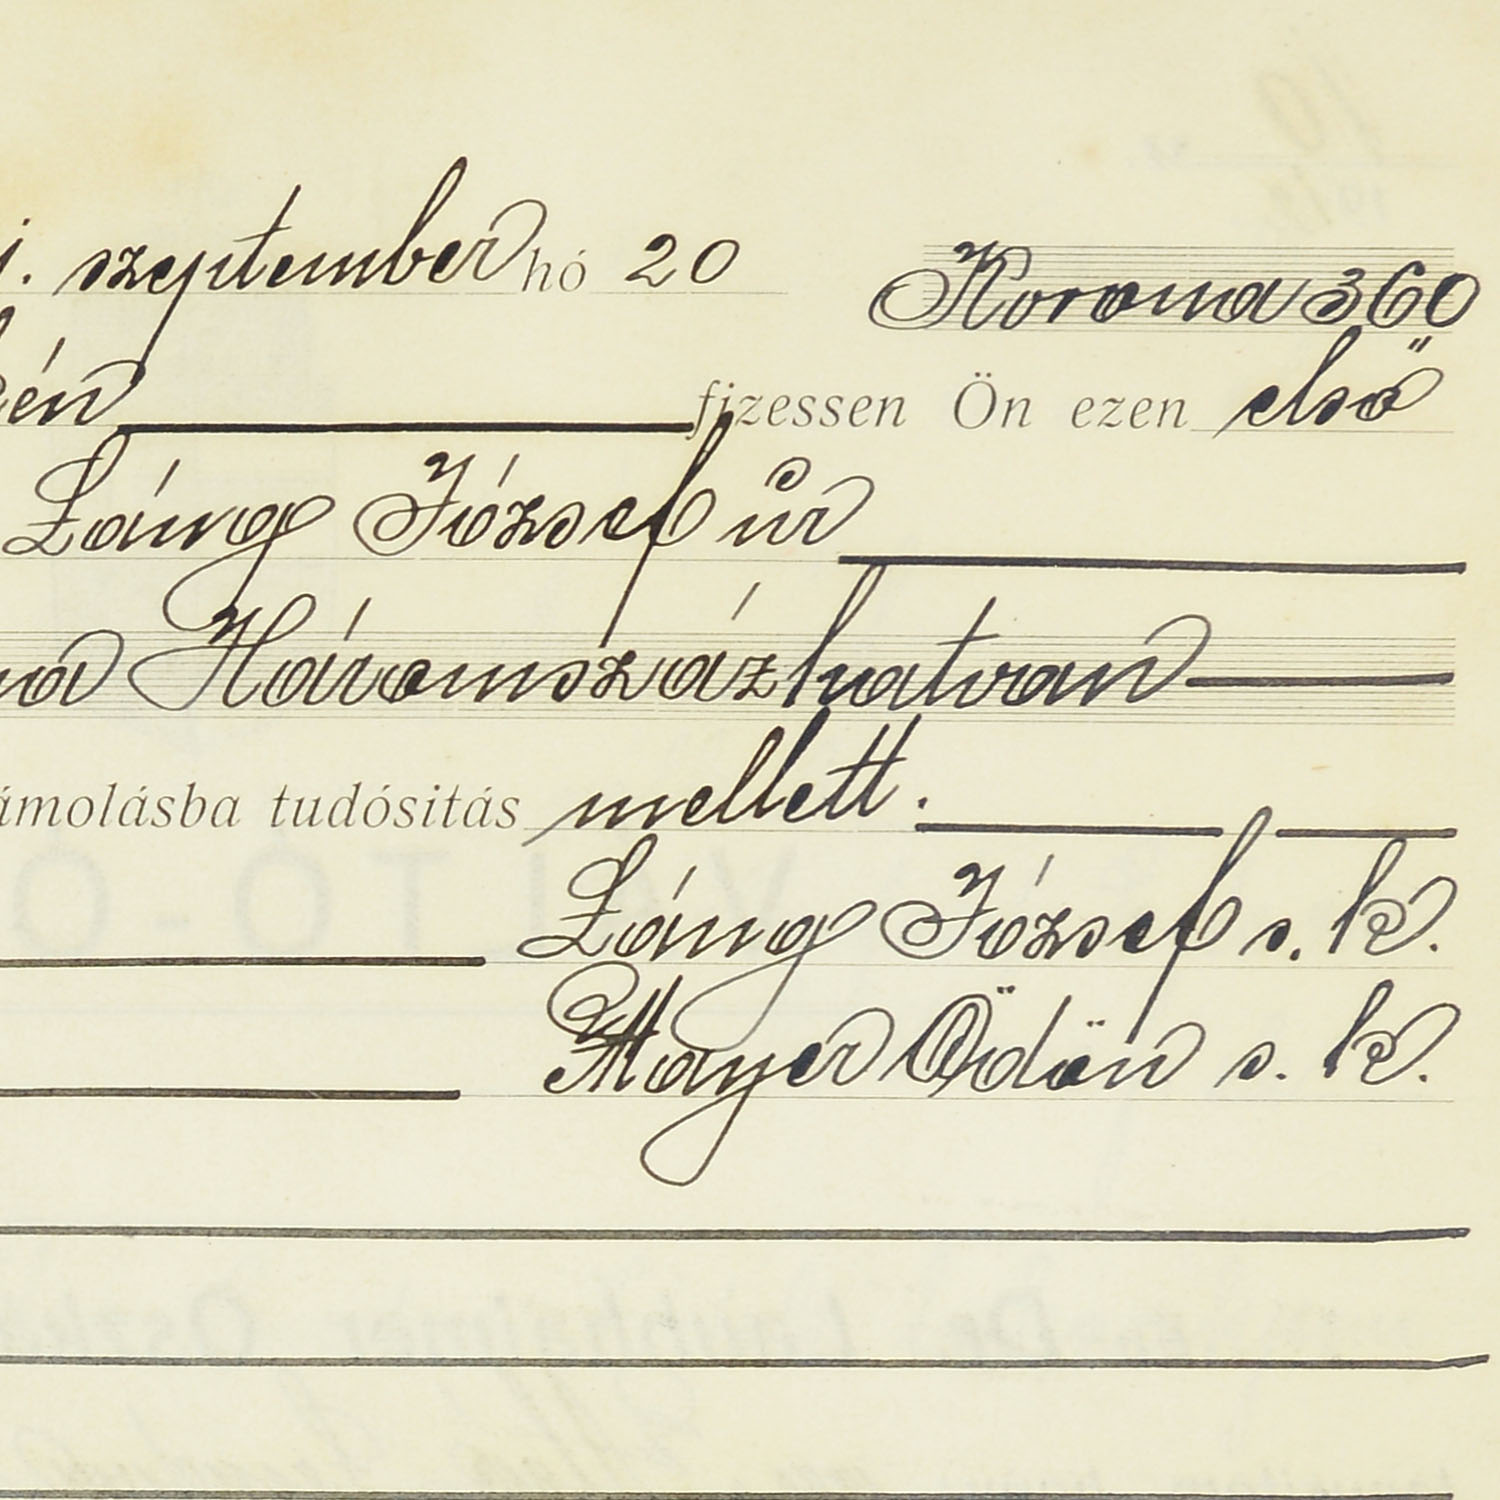 szeptember hó 20
Korona 360
én fizessen Ön ezen első
Láng József úr
Háromszázhatvan
ámolásba tudósitás mellett.
Láng József s. k.
Mayer Ödön s. k.